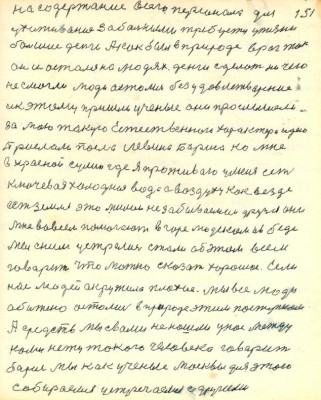 на содержание всего персонала для 151
ухаживание за больными требуется у жизни
большие деньги А раз был в природе враг так
он и остался людях. деньги сделат ни чего
не смогли люди остались без удовлетворение
и к этому пришли ученые они прослышали
за мою такую Естественного характера идею
Прислали посла Левшина Бариса ко мне
в красной сулин где я проживаю у меня есть
ключевая холодная вода а воздух как везде
есть земля это милые незабываемые друзья они
мне во всем помогают в горе людском а в беде
мы с ним устретились стали об этом всем
говорит что можно сказат хорошо. Если
нас людей окружила плохое. мы все люди
обижено остались в природе этим поступком
А средств мы с вами не нашли у нас между
нами нету такого человека говарит
Барис мы как ученые Москвы для этого
собираемся устречаемся с другими